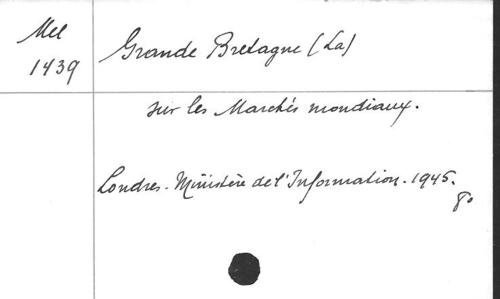 Mel
1439
Grande Bretagne (La)
sur les Marchés mondiaux.
Londres. Ministère de l'Information. 1945.
8º